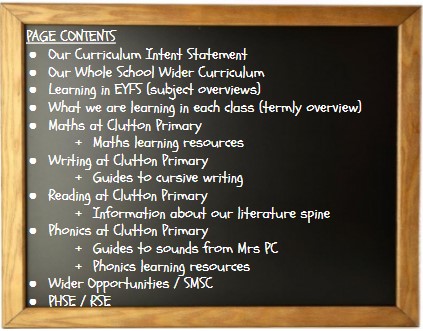 PAGE CONTENTS
• Our Curriculum Intent Statement
• Our Whole School Wider Curriculum
• Learning in EYFS (subject overviews)
• What we are learning in each class (termly overview)
• Maths at Clutton Primary
+ Maths learning resources
• Writing at Clutton Primary
+ Guides to cursive writing
• Reading at Clutton Primary
+ Information about our literature spine
• Phonics at Clutton Primary
+ Guides to sounds from Mrs PC
+ Phonics learning resources
• Wider Opportunities / SMSC
• PHSE / RSE